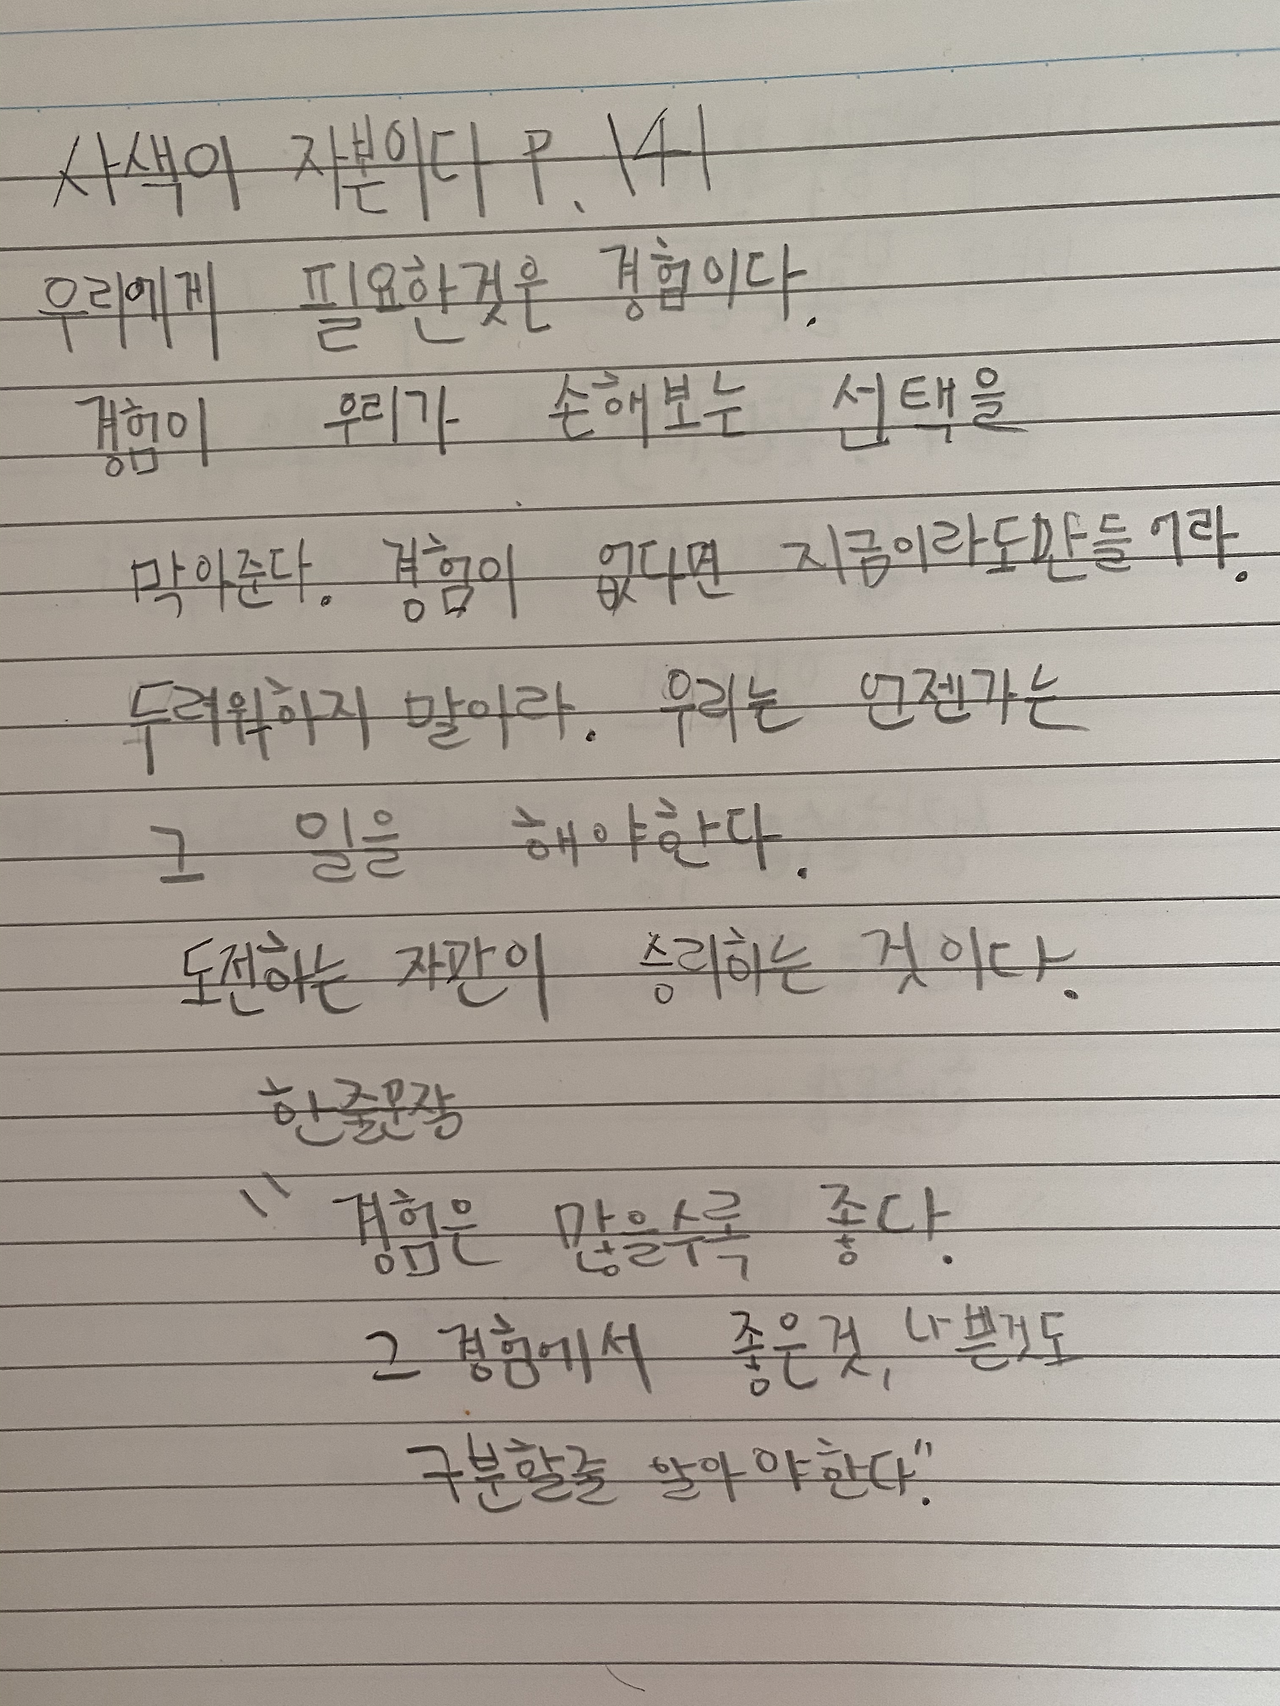 사색이 자본이다 P. 141
우리에게 필요한것은 경험이다.
경험이 우리가 손해보는 선택을
막아준다. 경험이 없다면 지금이라도만들어라.
두려워하지 말아라. 우리는 언젠가는
그 일을 해야한다.
도전하는 자만이 승리하는 것이다.
한줄문장
"경험은 많을수록 좋다.
그 경험에서 좋은것, 나쁜것도
구분할줄 알아야한다."